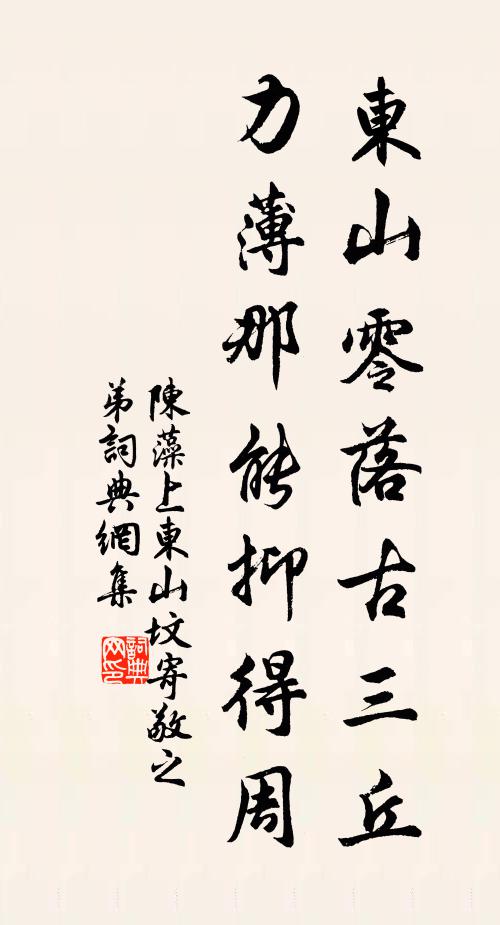 東山零落古三丘
力薄那能抑得周
陳藻上東山坟寄敬之
弟詞典網集
詞典
网印